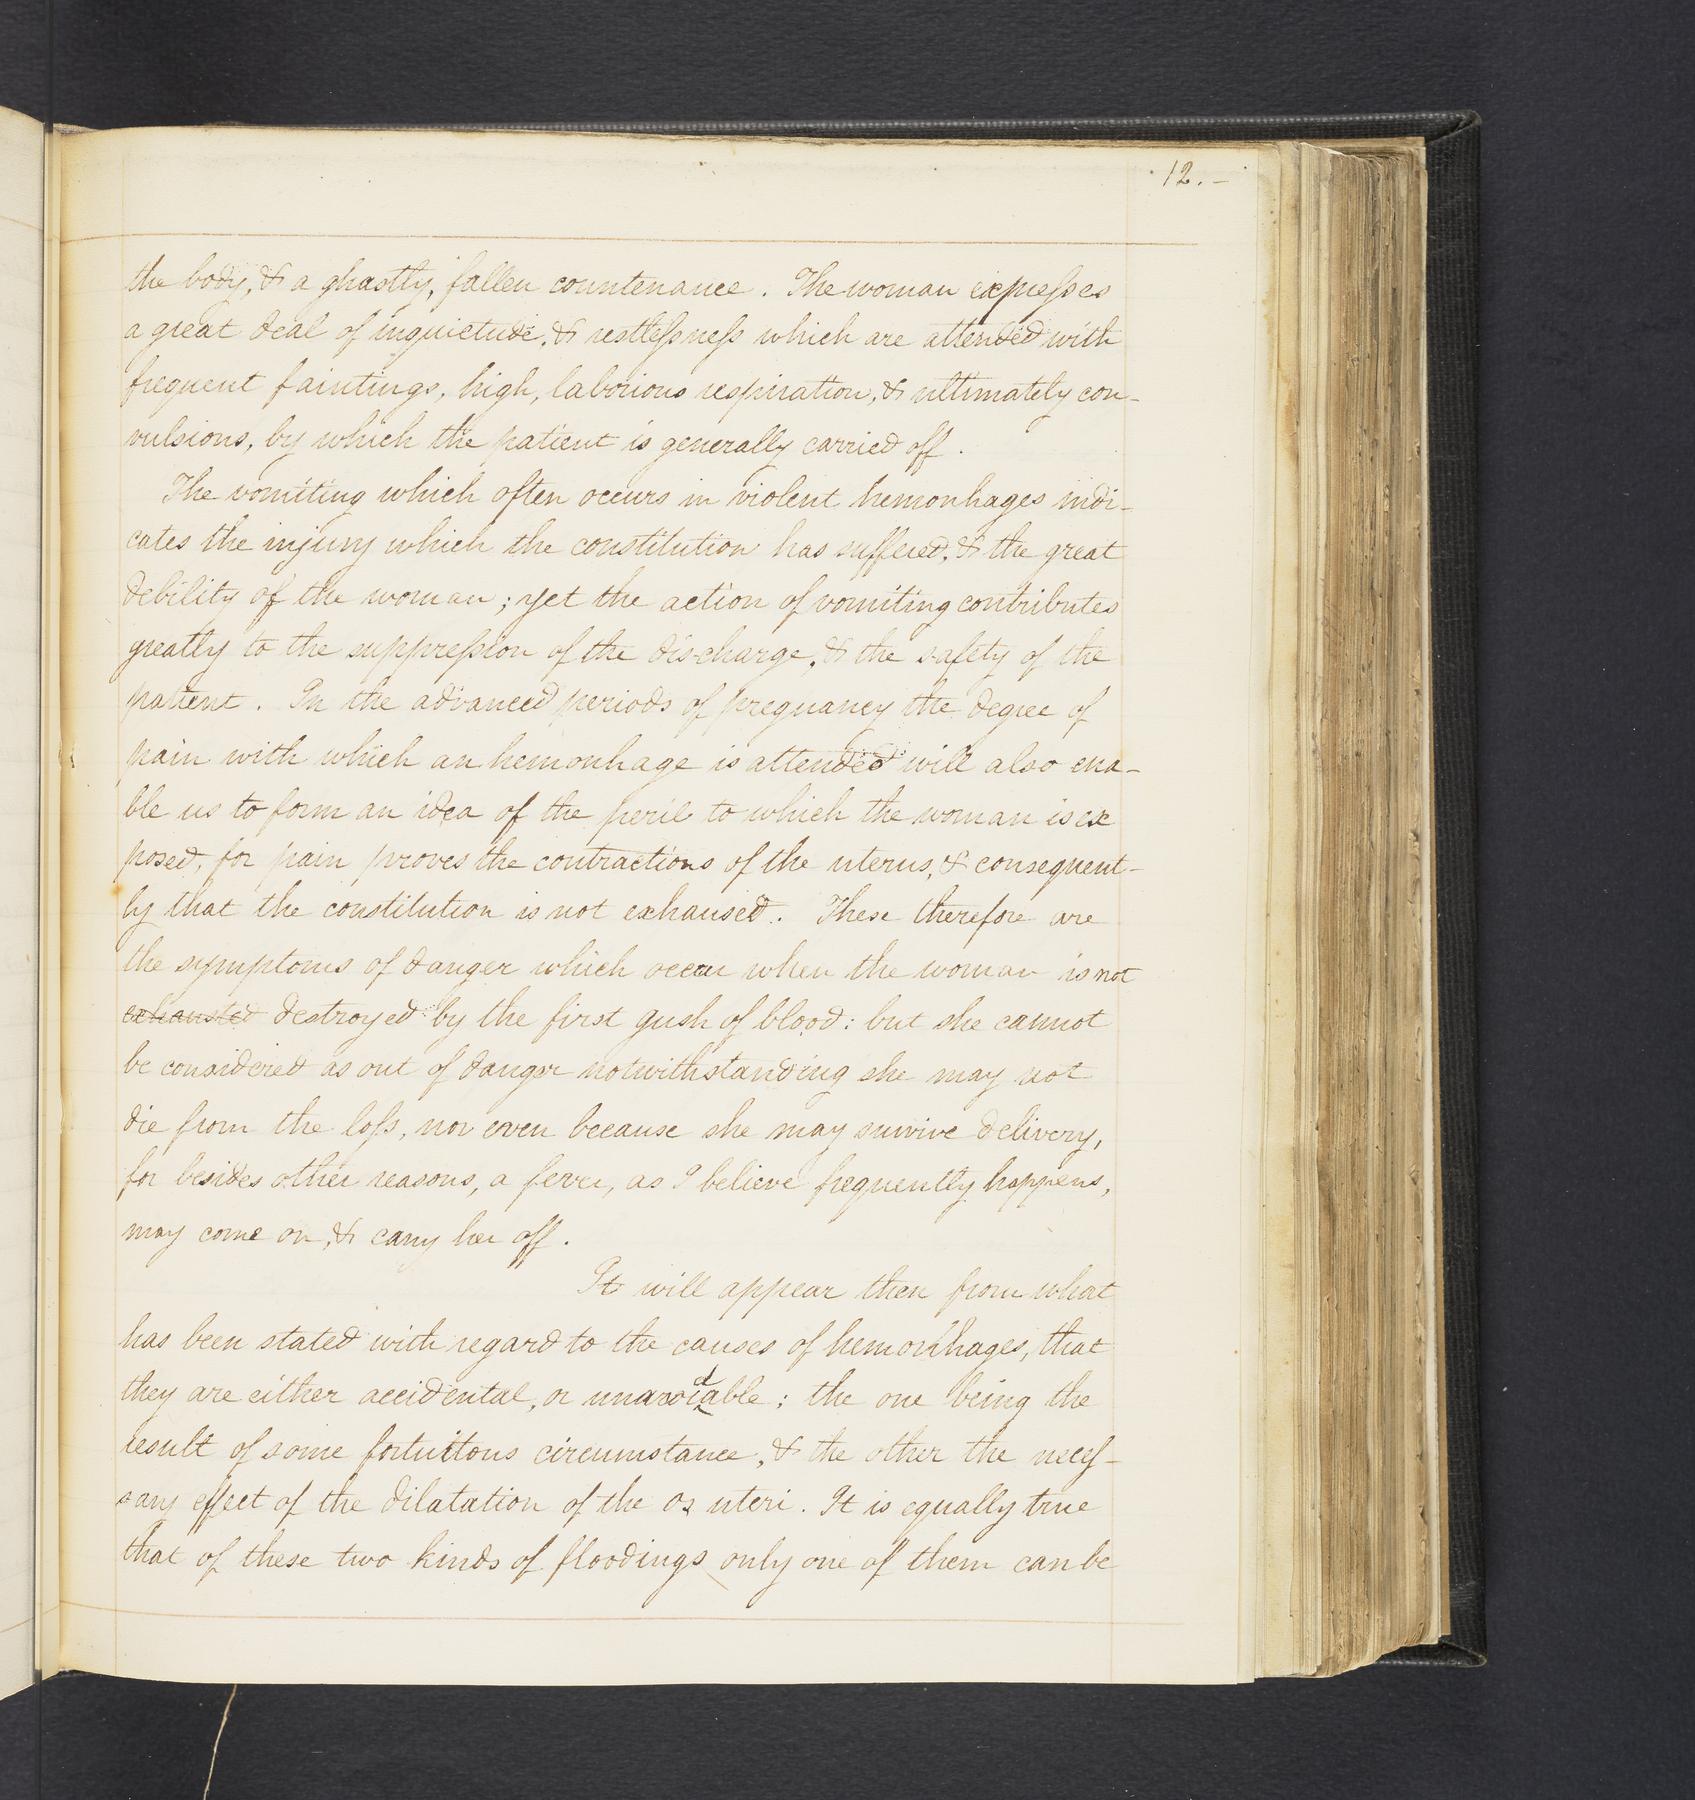 12.–
the body, & a ghastly, fallen countenance. The woman expreſses
a great deal of inquietude, & restleſsneſs which are attended with
frequent faintings, high, laborious respiration, & ultimately con-
vulsions, by which the patient is generally carried off.
The vomiting which often occurs in violent hemorrhages indi-
cates the injury which the constitution has suffered, & the great
debility of the woman; yet the action of vomiting contributes
greatly to the suppreſsion of the discharge, & the safety of the
patient. In the advanced periods of pregnancy the degree of
pain with which an hemorrhage is attended will also ena-
ble us to form an idea of the peril to which the woman is ex
posed, for pain proves the contractions of the uterus, & consequent-
ly that the constitution is not exhaused. These therefore are
the symptoms of danger which occur when the woman is not
exhausted destroyed by the first gush of blood: but she cannot
be considered as out of danger notwithstanding she may not
die from the loſs, nor even because she may survive delivery,
for besides other reasons, a fever, as I believe frequently happens,
may come on, & carry her off.
It will appear then from what
has been stated with regard to the causes of hemorrhages, that
they are either accidental, or unavoidable; the one being the
result of some fortuitous circumstance, & the other the neceſ-
sary effect of the dilatation of the os uteri. It is equally true
that of these two kinds of floodings only one of them can be